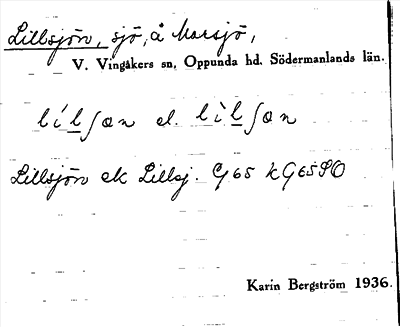 Lillsjön, sjö, å Marsjö,
V. Vingåkers sn, Oppunda hd. Södermanlands län.
lílʃøn el. lìlʃøn
Lillsjön ek Lillsj. G65 kG65SO
Karin Bergström 1936.